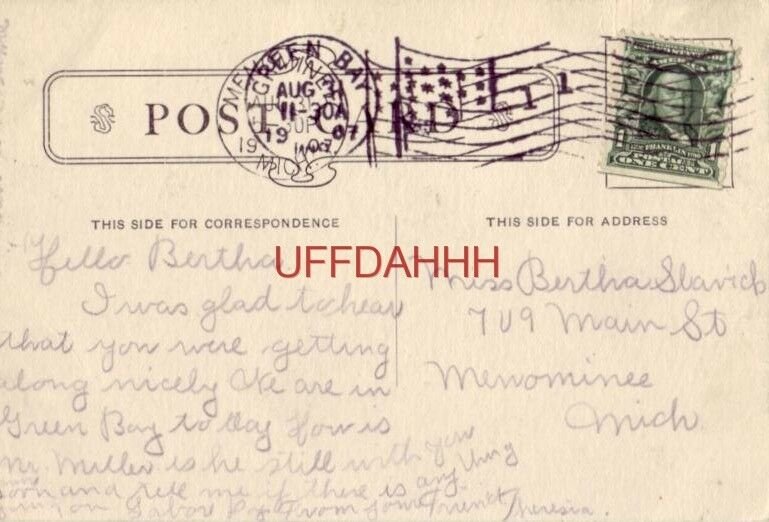 GREEN BAY
AUG
11-30A
1907
MICH
POST CARD
1
FRANKLIN
POSTAGE
ONE CENT
THIS SIDE FOR CORRESPONDENCE
THIS SIDE FOR ADDRESS
UFFDAHHH
Hello Bertha
I was glad to hear
that you were getting
along nicely We are in
Green Bay to day How is
Mr. Miller is he still with you
soon and tell me if there is any thing
going on Labor Day From your Friend Theresia.
Miss Bertha Slavick
709 Main St
Menominee
Mich